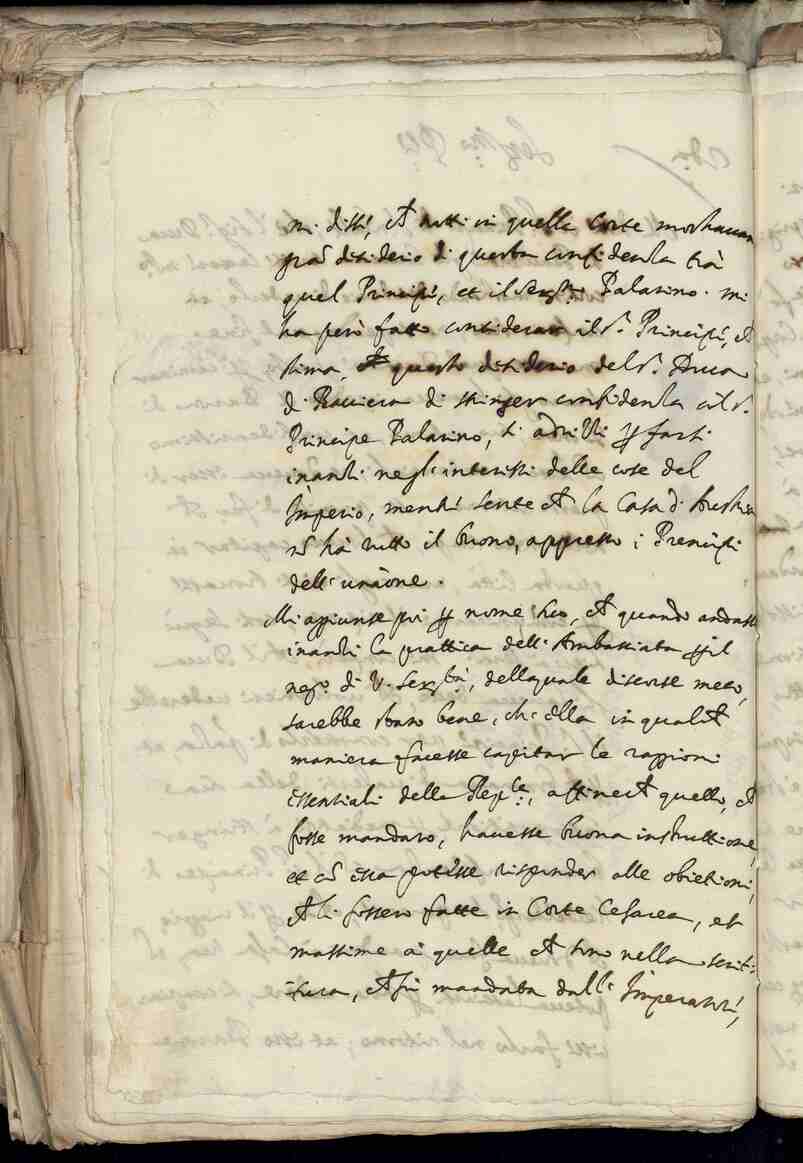 mi disse, che tutti in quella Corte mostrauan
gran desiderio di questa confidenza trà
quel Principe, et il Sermo: Palatino. mi
ha però fatto considerar il sr. Principe, che
stima, che questo desiderio del sr. Duca
di Bauiera di stringer confidenza col sr.
Principe Palatino, si addrizzi per farsi
inanzi negl'interessi delle cose del
Imperio, mentre sente che la Casa d'Austria
nō hà tutto il buono, appresso i Prencipi
dell'unione.
Mi aggiunse poi per nome suo, che quando andasse
inanzi la prattica dell'Ambassiata per il
nego: di V. Serstà:, della quale discorse meco,
sarebbe stato bene, ch'ella in qualche
maniera facesse capitar le raggioni
essentiali della Repca:, affineche quello, che
fosse mandato, hauesse buona instruttione,
et cō essa potesse risponder alle obietioni,
che li fossero fatte in Corte Cesarea, et
massime à quelle che sono nella scrit:
:tura, che fù mandata dall'Imperatore,